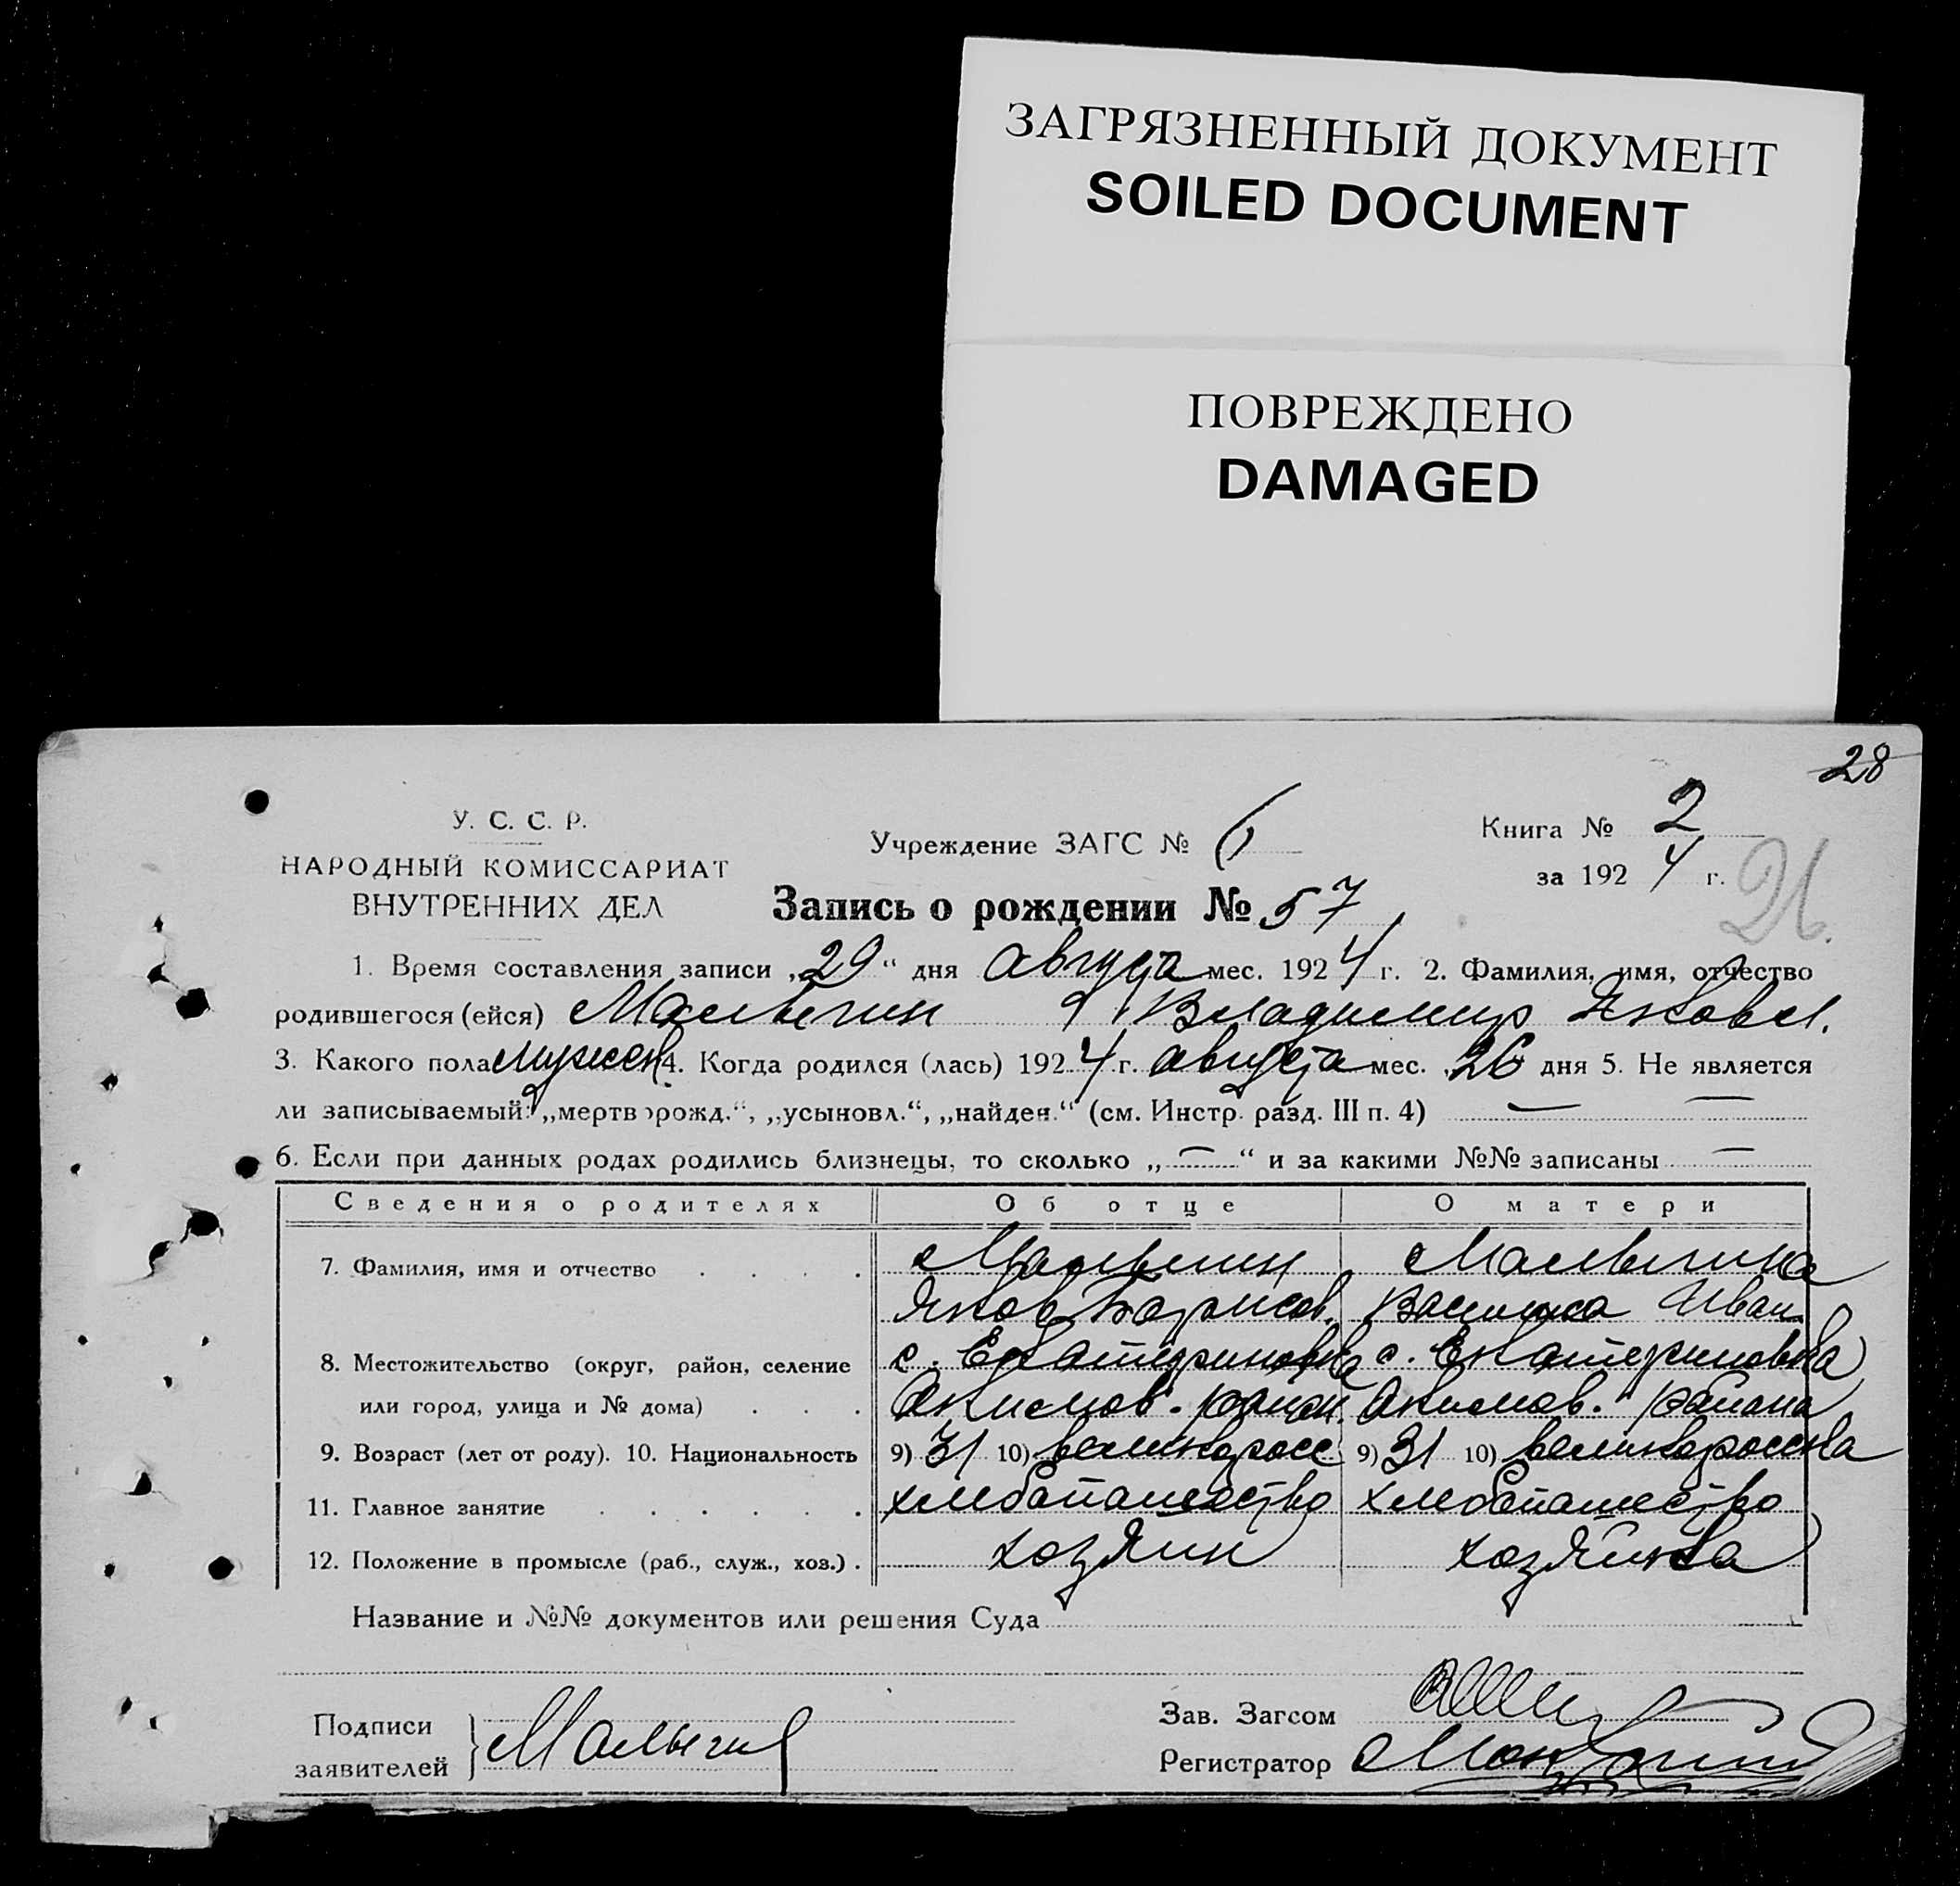 ЗАГРЯЗНЕННЫЙ ДОКУМЕНТ
SOILED DOCUMENT
ПОВРЕЖДЕНО
DAMAGED
28
У. С. С. Р.
НАРОДНЫЙ КОМИССАРИАТ
ВНУТРЕННИХ ДЕЛ
Учреждение ЗАГС № 6
Книга № 2
за 1924 г.
Запись о рождении № 57
1. Время составления записи „29“ дня Августа мес. 1924 г. 2. Фамилия, имя, отчество
родившегося (ейся) Малыгин Владимир Яковл.
3. Какого пола мужск 4. Когда родился (лась) 1924 г. августа мес. 26 дня 5. Не является
ли записываемый: „мертворожд.“, „усыновл.“, „найден.“ (см. Инстр. разд. III п. 4) — —
6. Если при данных родах родились близнецы, то сколько „—“ и за какими №№ записаны —
Сведения о родителях Об отце О матери
7. Фамилия, имя и отчество . . . . Малыгин Малыгина
Яков Борисов. Василиса Иван
8. Местожительство (округ, район, селение с. Екатериновка с. Екатериновка
или город, улица и № дома) . . . Акимов. район. Акимов. района
9. Возраст (лет от роду). 10. Национальность 9) 31 10) великоросс 9) 31 10) великоросска
11. Главное занятие . . . . . . хлебопашество хлебопашество
12. Положение в промысле (раб., служ., хоз.) . хозяин хозяйка
Название и №№ документов или решения Суда
Подписи
заявителей Малыгин
Зав. Загсом
Регистратор